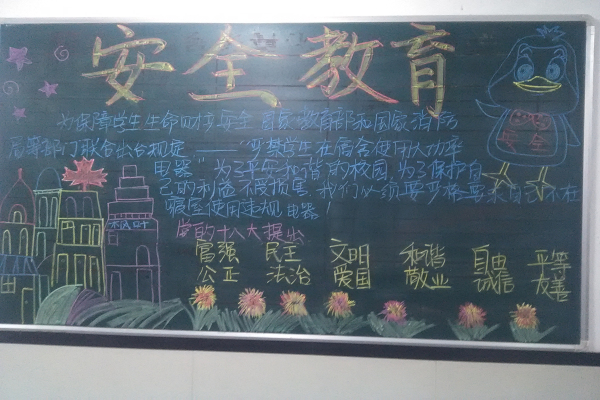 安全教育
为保障学生生命财产安全 国家教育部和国家消防
局等部门联合出台规定——“严禁学生在宿舍使用大功率
电器”为了平安和谐的校园,为了保护自
己的利益不受损害,我们必须要严格要求自己不在
寝室使用违规电器!
枫叶
安全
党的十八大提出
富强 民主 文明 和谐 自由 平等
公正 法治 爱国 敬业 诚信 友善